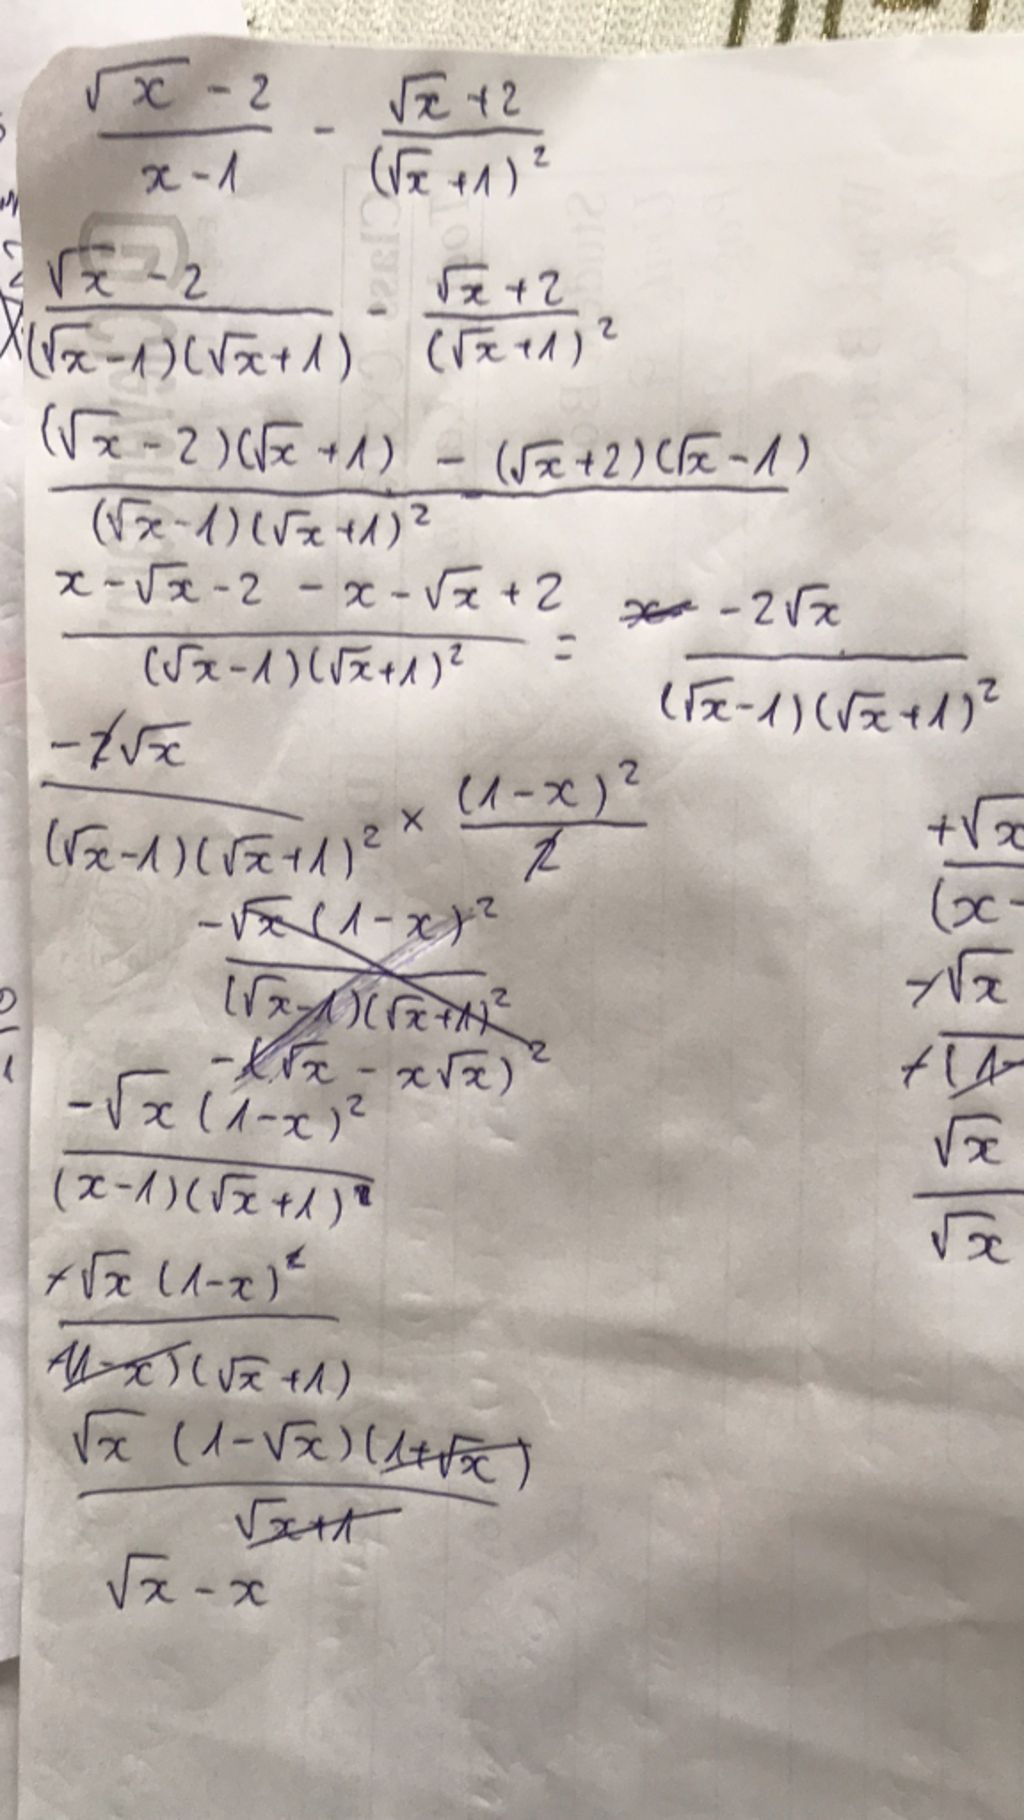 √x - 2 / x - 1 - √x + 2 / (√x + 1)²
√x - 2 / (√x - 1)(√x + 1) - √x + 2 / (√x + 1)²
(√x - 2)(√x + 1) - (√x + 2)(√x - 1) / (√x - 1)(√x + 1)²
x - √x - 2 - x - √x + 2 / (√x - 1)(√x + 1)² = - 2√x / (√x - 1)(√x + 1)²
-2√x / (√x - 1)(√x + 1)² × (1 - x)² / 2
-√x (1 - x)² / (√x - 1)(√x + 1)²
-(√x - x√x)²
-√x (1 - x)² / (x - 1)(√x + 1)
-√x (1 - x)² / -(1 - x)(√x + 1)
√x (1 - √x)(1 + √x) / √x + 1
√x - x
+√x
(x -
-√x
-(1 -
√x
√x